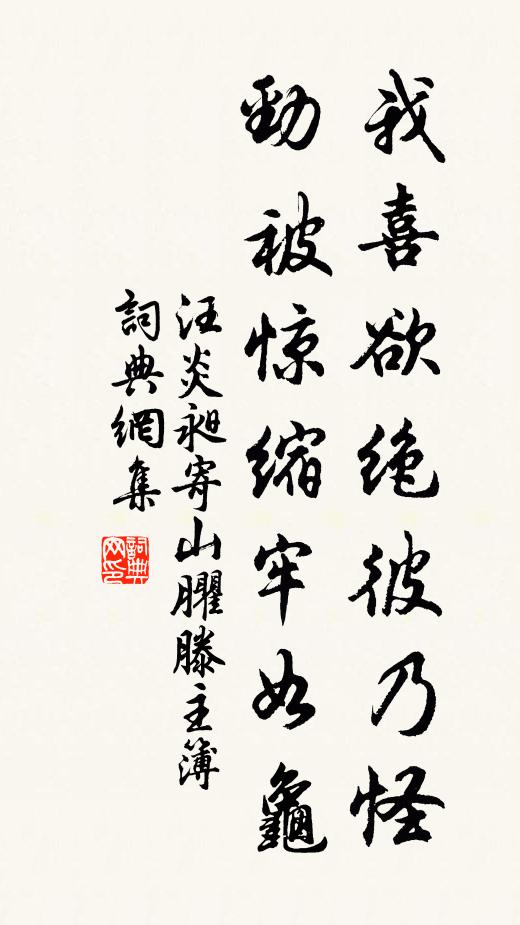 我喜欲绝彼乃怪
勁被惊缩牢如龜
汪炎昶寄山臞滕主簿
詞典網集
詞典网印